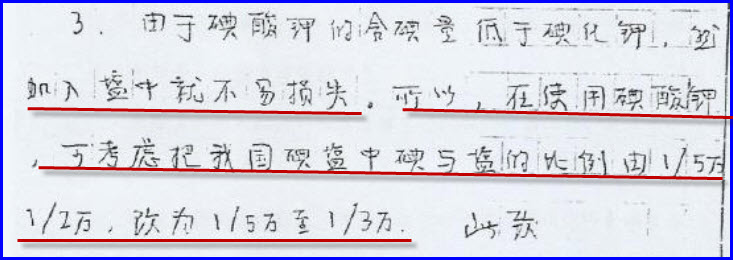 3. 由于碘酸钾的含碘量低于碘化钾,
加入盐中就不易损失。所以，在使用碘酸钾
，可考虑把我国碘盐中碘与盐的比例由1/5万
1/2万，改为1/5万至1/3万. 此致